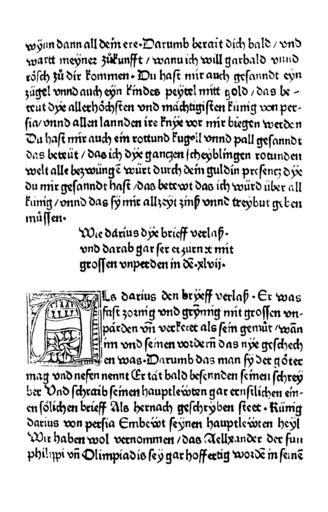 wynn dann all dein ere · Darumb berait dich bald / vnd
wartt meyner zůkunfft / wann ich will gar bald vnnd
rösch zů dir kommen · Du hast mir auch gesanndt eyn
zügel vnnd auch eyn kindes peytel mitt gold / das be⸗
teüt dye allerhöchsten vnd mächtigisten künig von per⸗
sia / vnnd allen lannden ire knye vor mir biegen werden
Du hast mir auch ein rottund kugell vnnd pall gesanndt
das beteüt / das ich dye ganczen scheyblingen rotunden
welt alle bezwüngen würt durch dein guldin presencz dye
du mir gesanndt hast / das betewt das ich würd über all
künig / vnnd das sy mir allzeyt zinß vnnd treybut geben
müssen ·
Wie darius dye brieff verlaß ·
vnd darab gar ser erzurnet mit
grossen vnperden in dē · xlvij ·
ALs darius den bryeff verlaß · Er was
fast zornig vnd grymig mit grossen vn⸗
pärden vn̄ verkeret als sein gemüt / wañ
im vnd seinen vordern̄ das nye geschech
en was · Darumb das man sy der götter
mag vnd nefen nennt Er tät bald besennden seinen schrey
ber Vnd schraib seinen hauptlewten gar ernslichen ein⸗
en sölichen brieff Als hernach geschryben steet · Künig
darius von persia Embewt seynen hauptlewten heyl
Wir haben wol vernommen / das Aellxander der sun
philippi vn̄ Olimpiadis sey gar hoffertig wordē in seinē